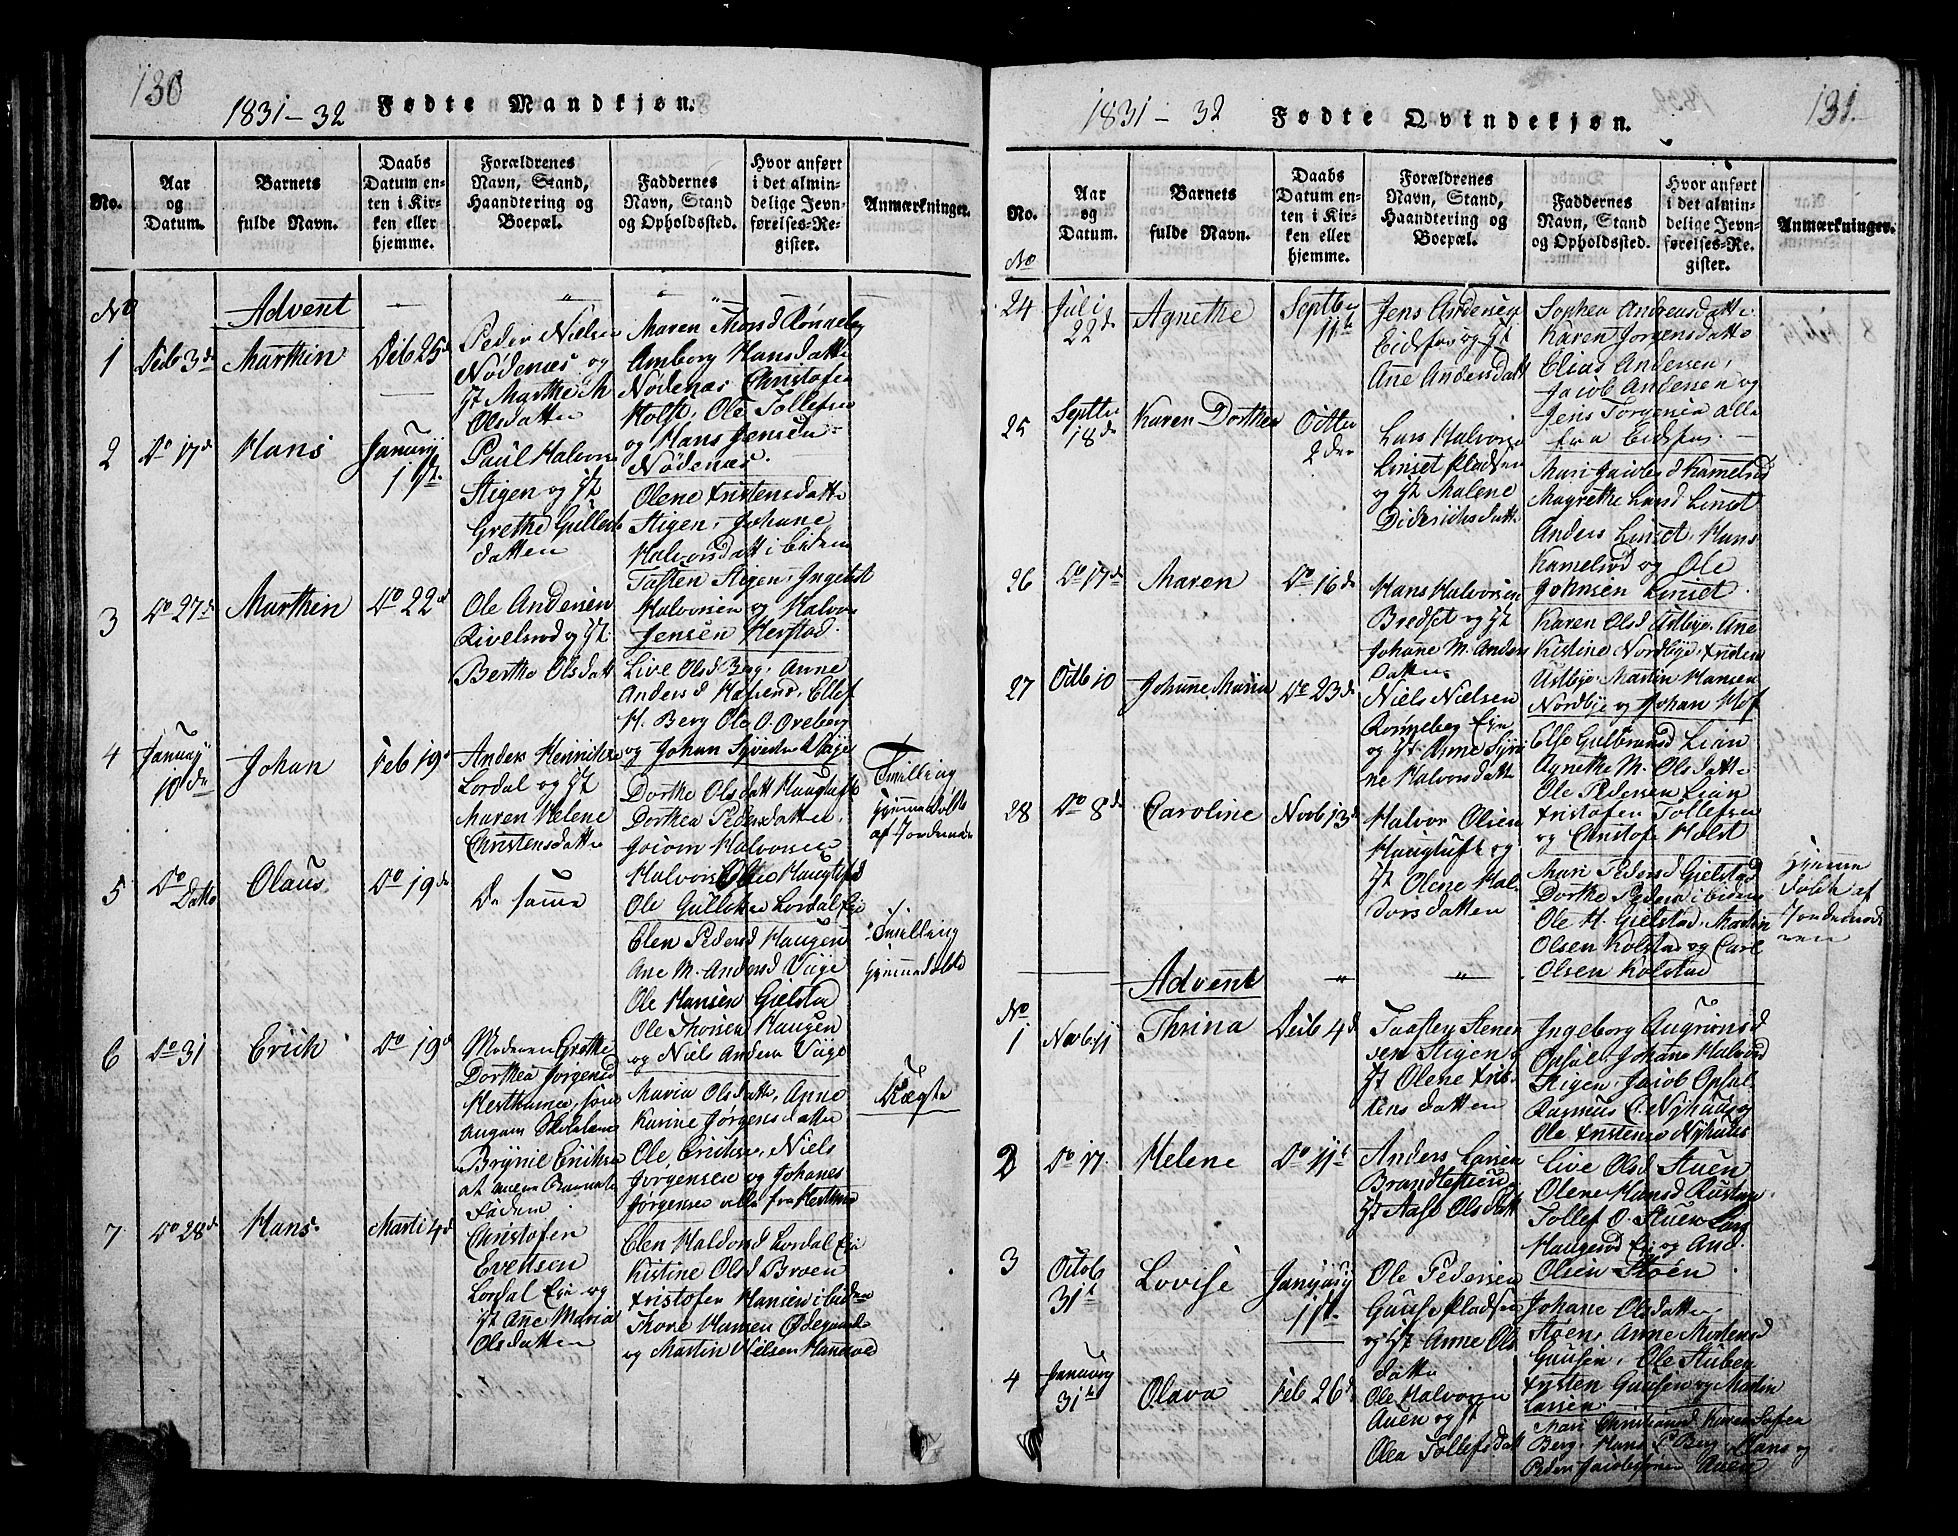 130
1831-32 Fødte Mandkjøn.
No.
Aar
og
Datum.
Barnets
fulde Navn.
Daabs
Datum en-
ten i Kir-
ken eller
hjemme.
Forældrenes
Navn, Stand,
Haandtering og
Boepæl.
Faddernes
Navn, Stand
og Opholdssted.
Hvor anført
i det almin-
delige Jevn-
førelses-Re-
gister.
Anmærkninger.
No
Advent
1
Decb 3d
Marthin
Decb 25d
Peder Nielsen
Nødenæs og
Marthe M
Olsdatter
Maren Thorsd Rønneberg
Amborg Hansdatter
Nødenæs Christofer
Holst, Ole Tollefsen
og Hans Jensen
Nødenæs.
2
Do 17d
Hans
Januarj
1
Paul Halvors
Stigen og
Grethe Gullichs
datten
Olene Xristensdatter
Stigen, Johane
Halvorsdatt i Eidem
Taften Stigen, Ingebret
Halvorsen og Halvor
Jensen Herstad.
3
Do 27d
Marthin
Do 22d
Ole Andersen
Rivelsrod og
Berthe Olsdatt
Live Olsd Berg, Anne
Andersd Hafsend, Ellef
H. Berg Ole O. Oreberg
og Johan
4
Januarj
10de
Johan
Feb 19d
Anders Henrichs
Lordal og
Maren Helene
Christensdatter
Dorthe Olsdatt Haugtuft
Dorthea Pedersdatter
Halvorsen
Halvor Haugtuft
Ole Gullichsen Lordal Eje
Tvilling
hjemmedøbt
af Jordemoder
5
Do
Datto
Olaus
Do 19de
De samme
Elen Pedersd Haugen
Ane M. Andersd Viige
Ole Hansen Gielstad
Ole Thorsen Haugen
og Niels Andersen Viige
Tvilling
hjemmedøbt
6
Do 31
Erich
Do 19d
Moderen Grethe
Dorthea Jørgensd
Brynil Erichsen
Fadern
Maria Olsdatter, Anne
Karine Jørgensdatter
Ole Erichsen, Niels
Jørgensen og Johanes
Jørgensen alle fra
Uægte
7
Do 28d
Hans
Marti 4d
Christofer
Evensen
Lordal Eje og
Ane Maria
Olsdatter
Elen Halvorsd Lordal Eje
Kistine Olsd Broen
Xristofer Hansen i Eidem
Thore Hansen Ødegaard
og Martin Nielsen
131.
1831-32 Fødte Qvindekjøn.
No.
Aar
og
Datum.
Barnets
fulde Navn.
Daabs
Datum en-
ten i Kir-
ken eller
hjemme.
Forældrenes
Navn, Stand,
Haandtering og
Boepæl.
Faddernes
Navn, Stand
og Opholdssted.
Hvor anført
i det almin-
delige Jevn-
førelses-Re-
gister.
Anmærkninger.
No
24
Juli
22d
Agnethe
Septbr
11t
Jens Andersen
Eidsfos og
Ane Andersdatt
Sophea Andreasdatter
Karen Jørgensdatter
Elias Andersen,
Jacob Andersen og
Jens Torgersen alle
fra Eidsfos.
25
Septbr
18d
Karen Dorthea
Octbr
2den
Lars Halvorsen
Linset pladsen
og Malene
Diderichsdatter
Mari Jacobsd Kamelrod
Magrethe Larsd Linset
Anders Linset, Hans
Kamelrod og Ole
Johnsen Linset.
26
Do 17d
Maren
Do 16d
Hans Halvorsen
Bredset og
Johane M. Anders
datter
Karen Olsd Astbye, Ane
Kistine Nordbye, Xristen
Astbye, Martin Hansen
Nordbye og Johan Hof
27
Octb 10
Johanne Maria
Do 23d
Niels Nielsen
Rønneberg Eje
og Anne Syri
ne Halvorsdatter
Else Gulbransd Lian
Agnethe M. Olsdatter
Ole Pedersen Lian
Xristofer Tollefsen
og Christofer Holst
28
Do 8d
Caroline
Novb 13d
Halvor Olsen
Haugtuft og
Olene Hal
vorsdatten
Mari Pedersd Gielstad
Dorthe Pedersd i Eidem
Ole H. Gielstad, Martin
Olsen Kolstad og Carl
Olsen Kolstad
Hjemme
døbt af
Jordemode
ren
Advent
No
1
Novb 11
Thrina
Decb 4d
Taaftes Stenen
sen Stigen og
Olene Xris
tensdatten
Ingeborg
Opsal, Johane Halvorsd
Stigen, Jacob Opsal
Rasmus C. Nyhuus og
Ole Xristensen Nyhuus
2
Do 17.
Helene
Do 11t
Anders Larsen
Brandtestuen
Aase Olsdatt
Live Olsd Stuen
Olene Hansd Rustan
Tollef O. Stuen Lars
Haugerod Eje og And.
Olsen Støen
3
Octob
31t
Lovise
Januarj
1
Ole Pedersen
Gausepladsen
og Anne Ols
datter
Johane Olsdatter
Støen, Anne Mortensd
Gausen, Ole Stuben
Xristen Gausen og Martin
Larsen
4
Januarj
31t
Olava
Feb 26d
Ole Halvorsen
Auen og
Olea Tollefsdatt
Mari Christiansd Karen Sofea
Berg, Hans P Berg, Hans og
Peder Jacobsønner Auen